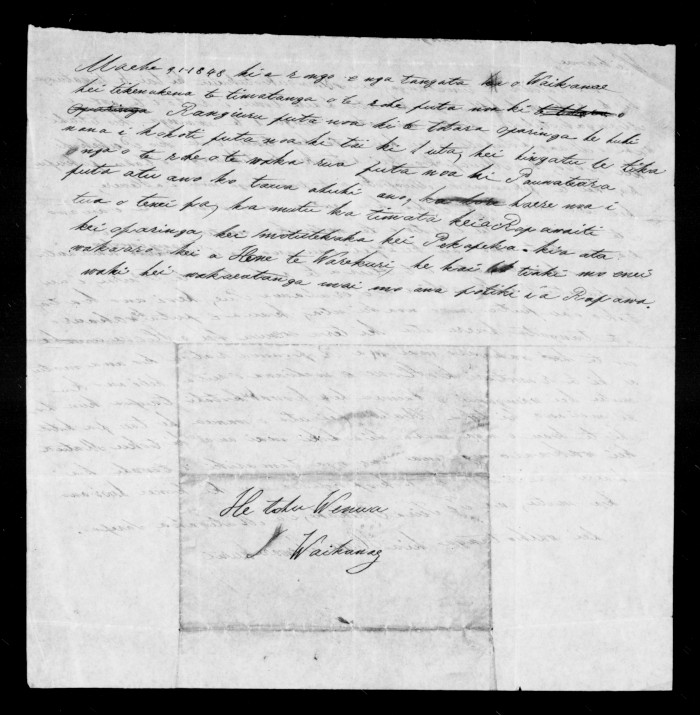 Maehe 91-1848 kia rongo e nga tangata ka o Waikanae
hei tikenakena te timatanga o te rohe puta noa ki te titara o
Oparinga Rangiuru puta noa ki te titara oparinga he huki
nona i kokoti puta noa ki tei ki uta, kei hingatu te tika
nga o te rohe o te waka rua puta noa ki Pauwateara
puta atu ano ko taua ahuhi ano, haere noa i
tua o tenei pa, ka mutu ka timata keia Rapawaiti
kei oparinga, kei motutekuka kei Pekapeka. kia ata
wakaaro. kei a Hene te Warekuri, he kai tiaki mo enei
wahi hei wakaeatanga mai mo ana potiki i a Rapawa.
He tohu Wenua
Waikanae